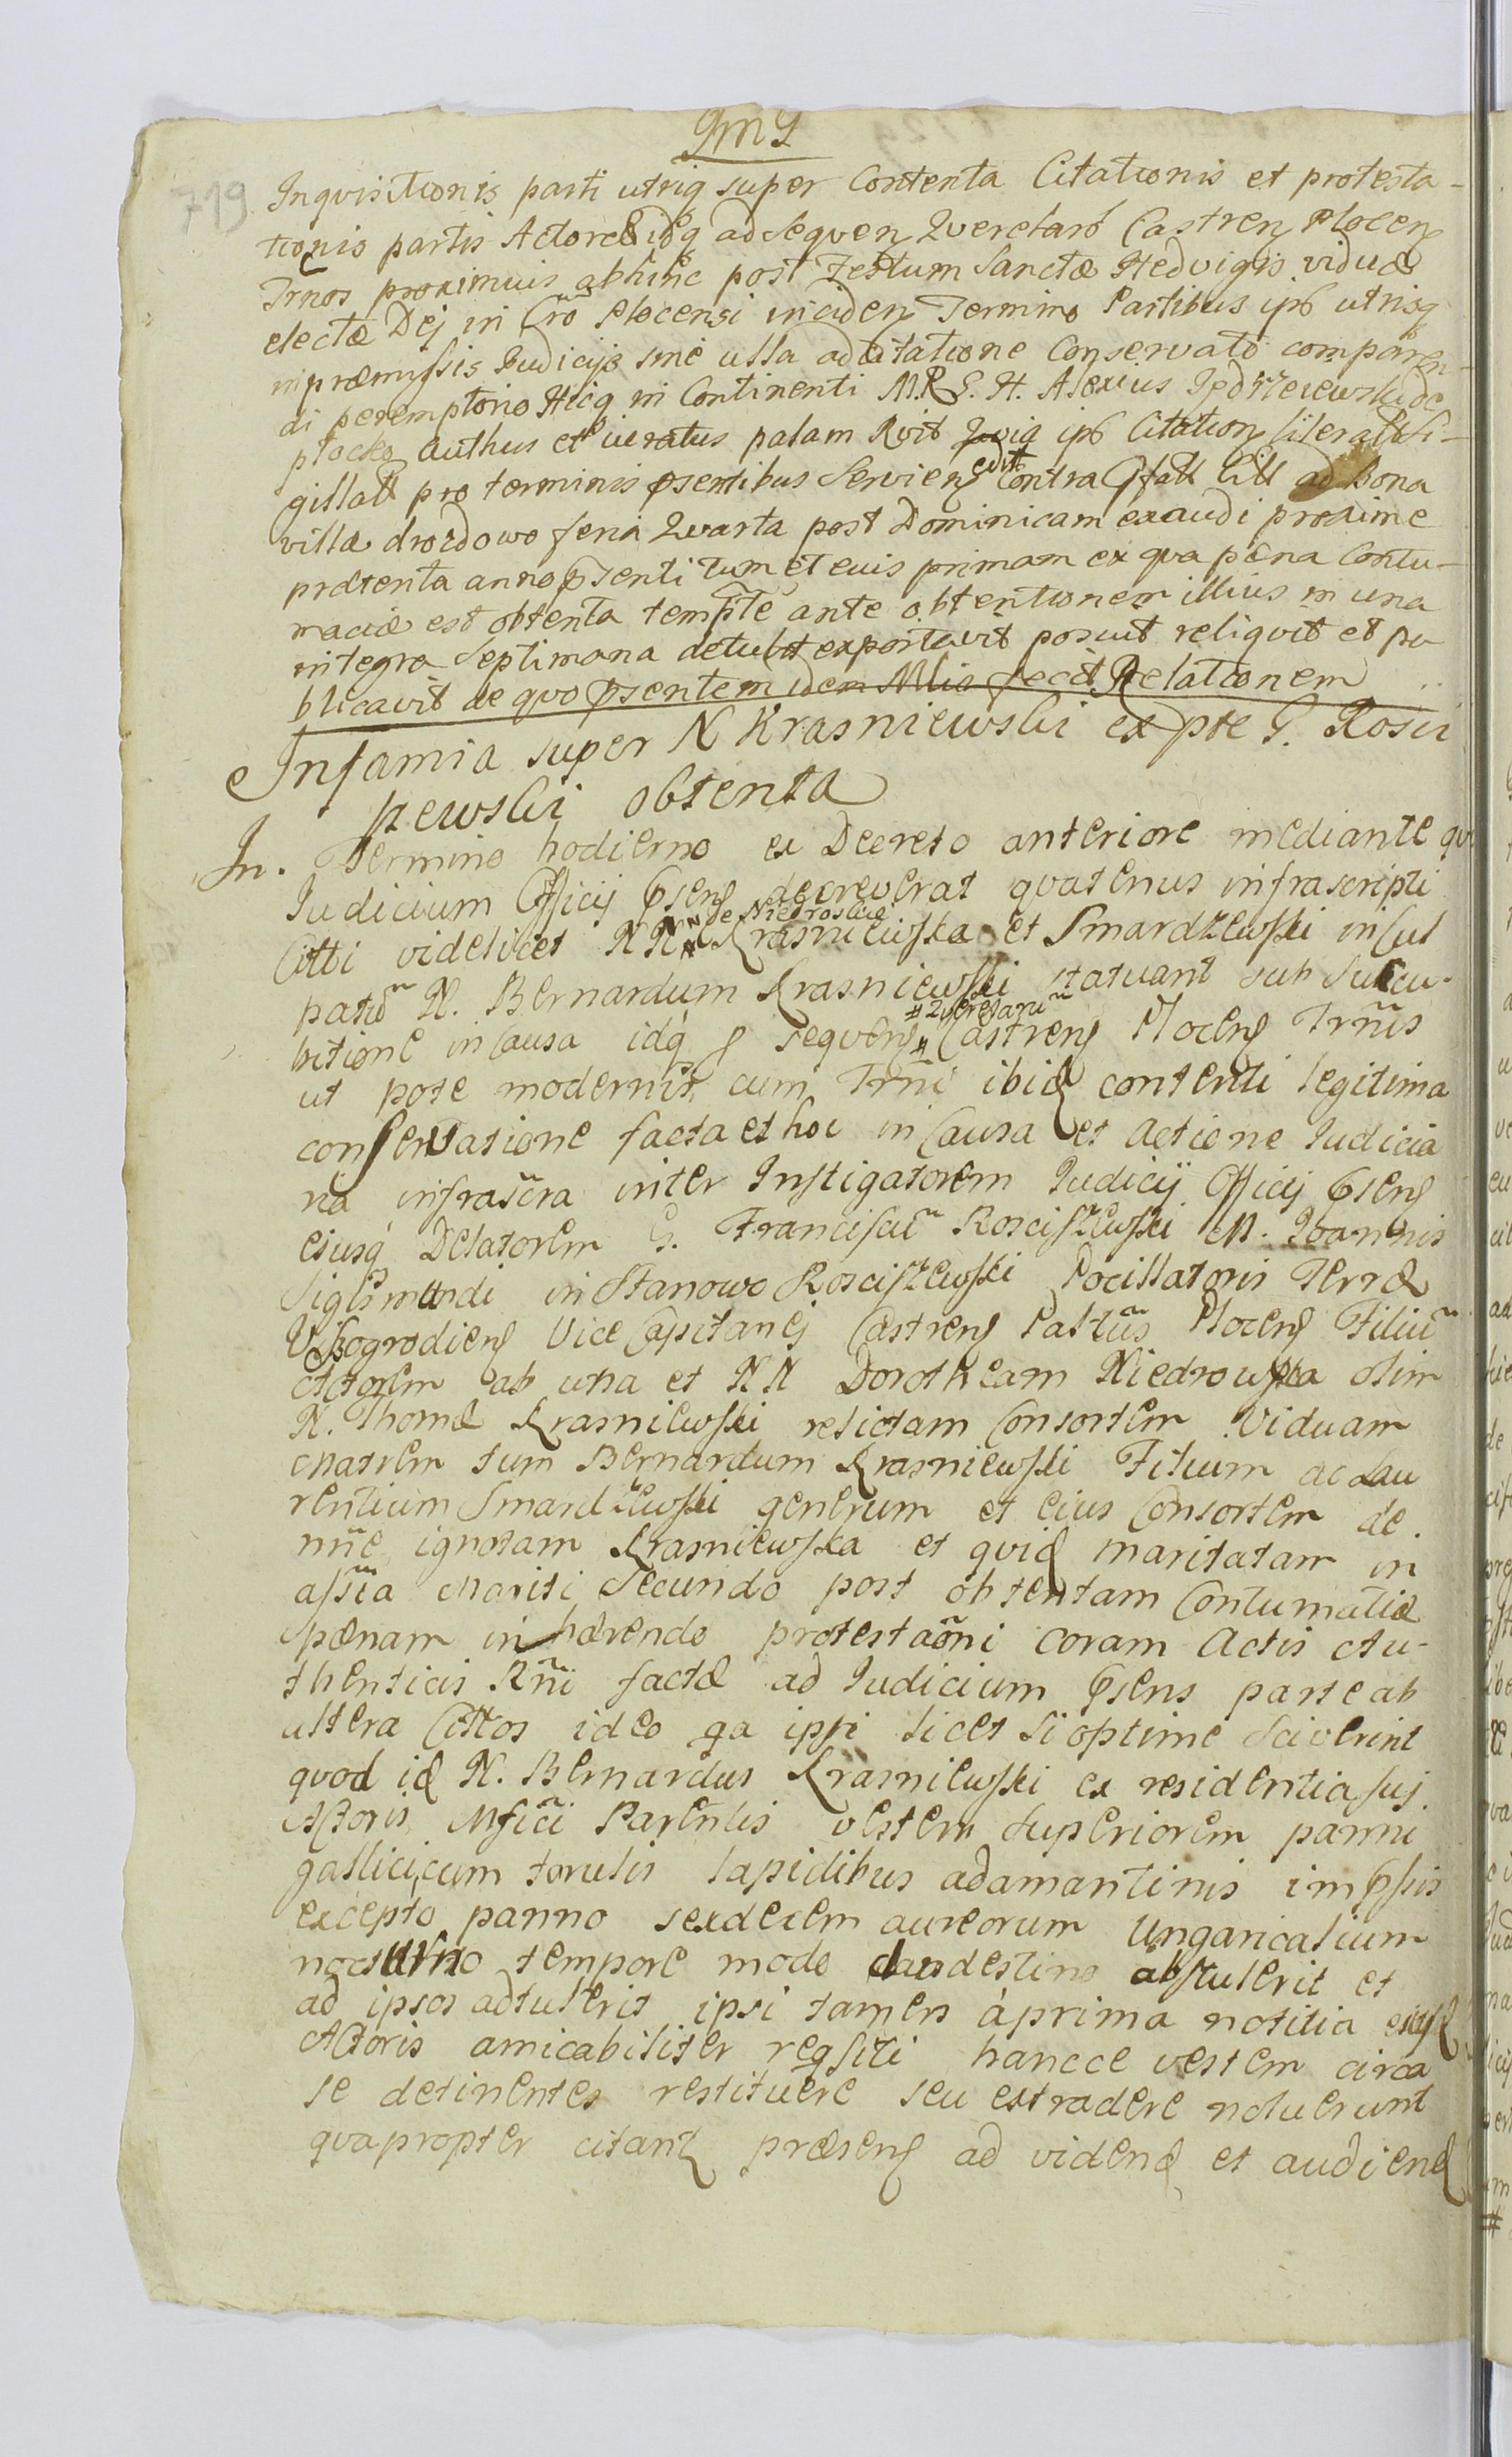 JMJ
719
Inqvisitionis parti utriq super Contenta Citationis et protesta-
tionis partis Actoreæ idq ad Seqven Qverelar Castren Plocen
Trnos proximius abhinc post Festum Sanctæ Hedvigis viduæ
electæ Dej in Cro Plocensi inciden Termino Partibus ips utrisq
in præmissis Judicijs sine ulla adcitatione Conservato comparen-
di peremptorio Hicq in Continenti M.R.S.H. Alexius Jedrzeiewski de
plocko authus et iuratus palam Rvit ipś Citation literałł Si-
gillałł pro terminis psentibus Servien edit contra Citt ad Bona
villæ drozdowo feria Qvarta post Dominicam exaudi proxime
præterita anno psenti tum et euis primam ex qva pæna Contu-
maciæ est obtenta tempte ante obtentionem illius in una
integra Septimana detulit exportavit posuit reliqvit et pu
blicavit de qvo psentem idem Mlis fecit Relationem
Infamia super N Krasniewski ex pte G. Rosci
pewski obtenta
In. Termino hodierno ex Decreto anteriore mediante qvo
Judicium Officij Psens decreverat qvatenus infrascripti
Citti videlicet NN # de Niedroskie Krasniewska et Smardzewski incul
patu N. Bernardum Krasniewski statuant sub Succu-
bitione in Causa idq p seqvens # Qverelaru Castrens Plocens Trnis
ut pote modernis cum Trni ibid contenti legitima
conservatione facta et hoc in Causa et Actione Judicia
ria infrascra inter Instigatorem Judicij Officij Psens
ejusq Delatorem G. Franciscu Rosciszewski M. Joannis
Sigismundi in Stanowo Rosciszewski Pocillatoris Terræ
Wissogrodiens Vice Capitanej Castrens Palstus Plocens Filiu
Actorem ab una et NN Dorotheam Niedrowska olim
N. Thomæ Krasniewski relictam Consortem Viduam
Matrem tum Bernardum Krasniewski Filium ac Lau
rentium Smardzewski generum et eius Consortem de
nne ignotam Krasniewska et qvid maritatam in
assia Mariti Secundo post obtentam Contumatiæ
pænam inhærendo protestaoni coram Actis Au-
thenticis Rni factæ ad Judicium Psens parte ab
altera Cittos ideo qa ipsi licet si optime Sciverint
qvod id N. Bernardus Krasniewski ex residentia suj
Actoris Mfici Parentis vestem Superiorem panni
gallici, cum torulis lapidibus adamantinis impssis
excepto panno sexdecim aureorum Ungaricalium
nocturno tempore modo clandestino abstulerit et
ad ipsos adtulerit ipsi tamen à prima notitia
Actoris amicabiliter reqsiti hancce vestem circa
se detinentes restituere seu extradere noluerunt
qvapropter citant præsens ad videnđ et audienđ